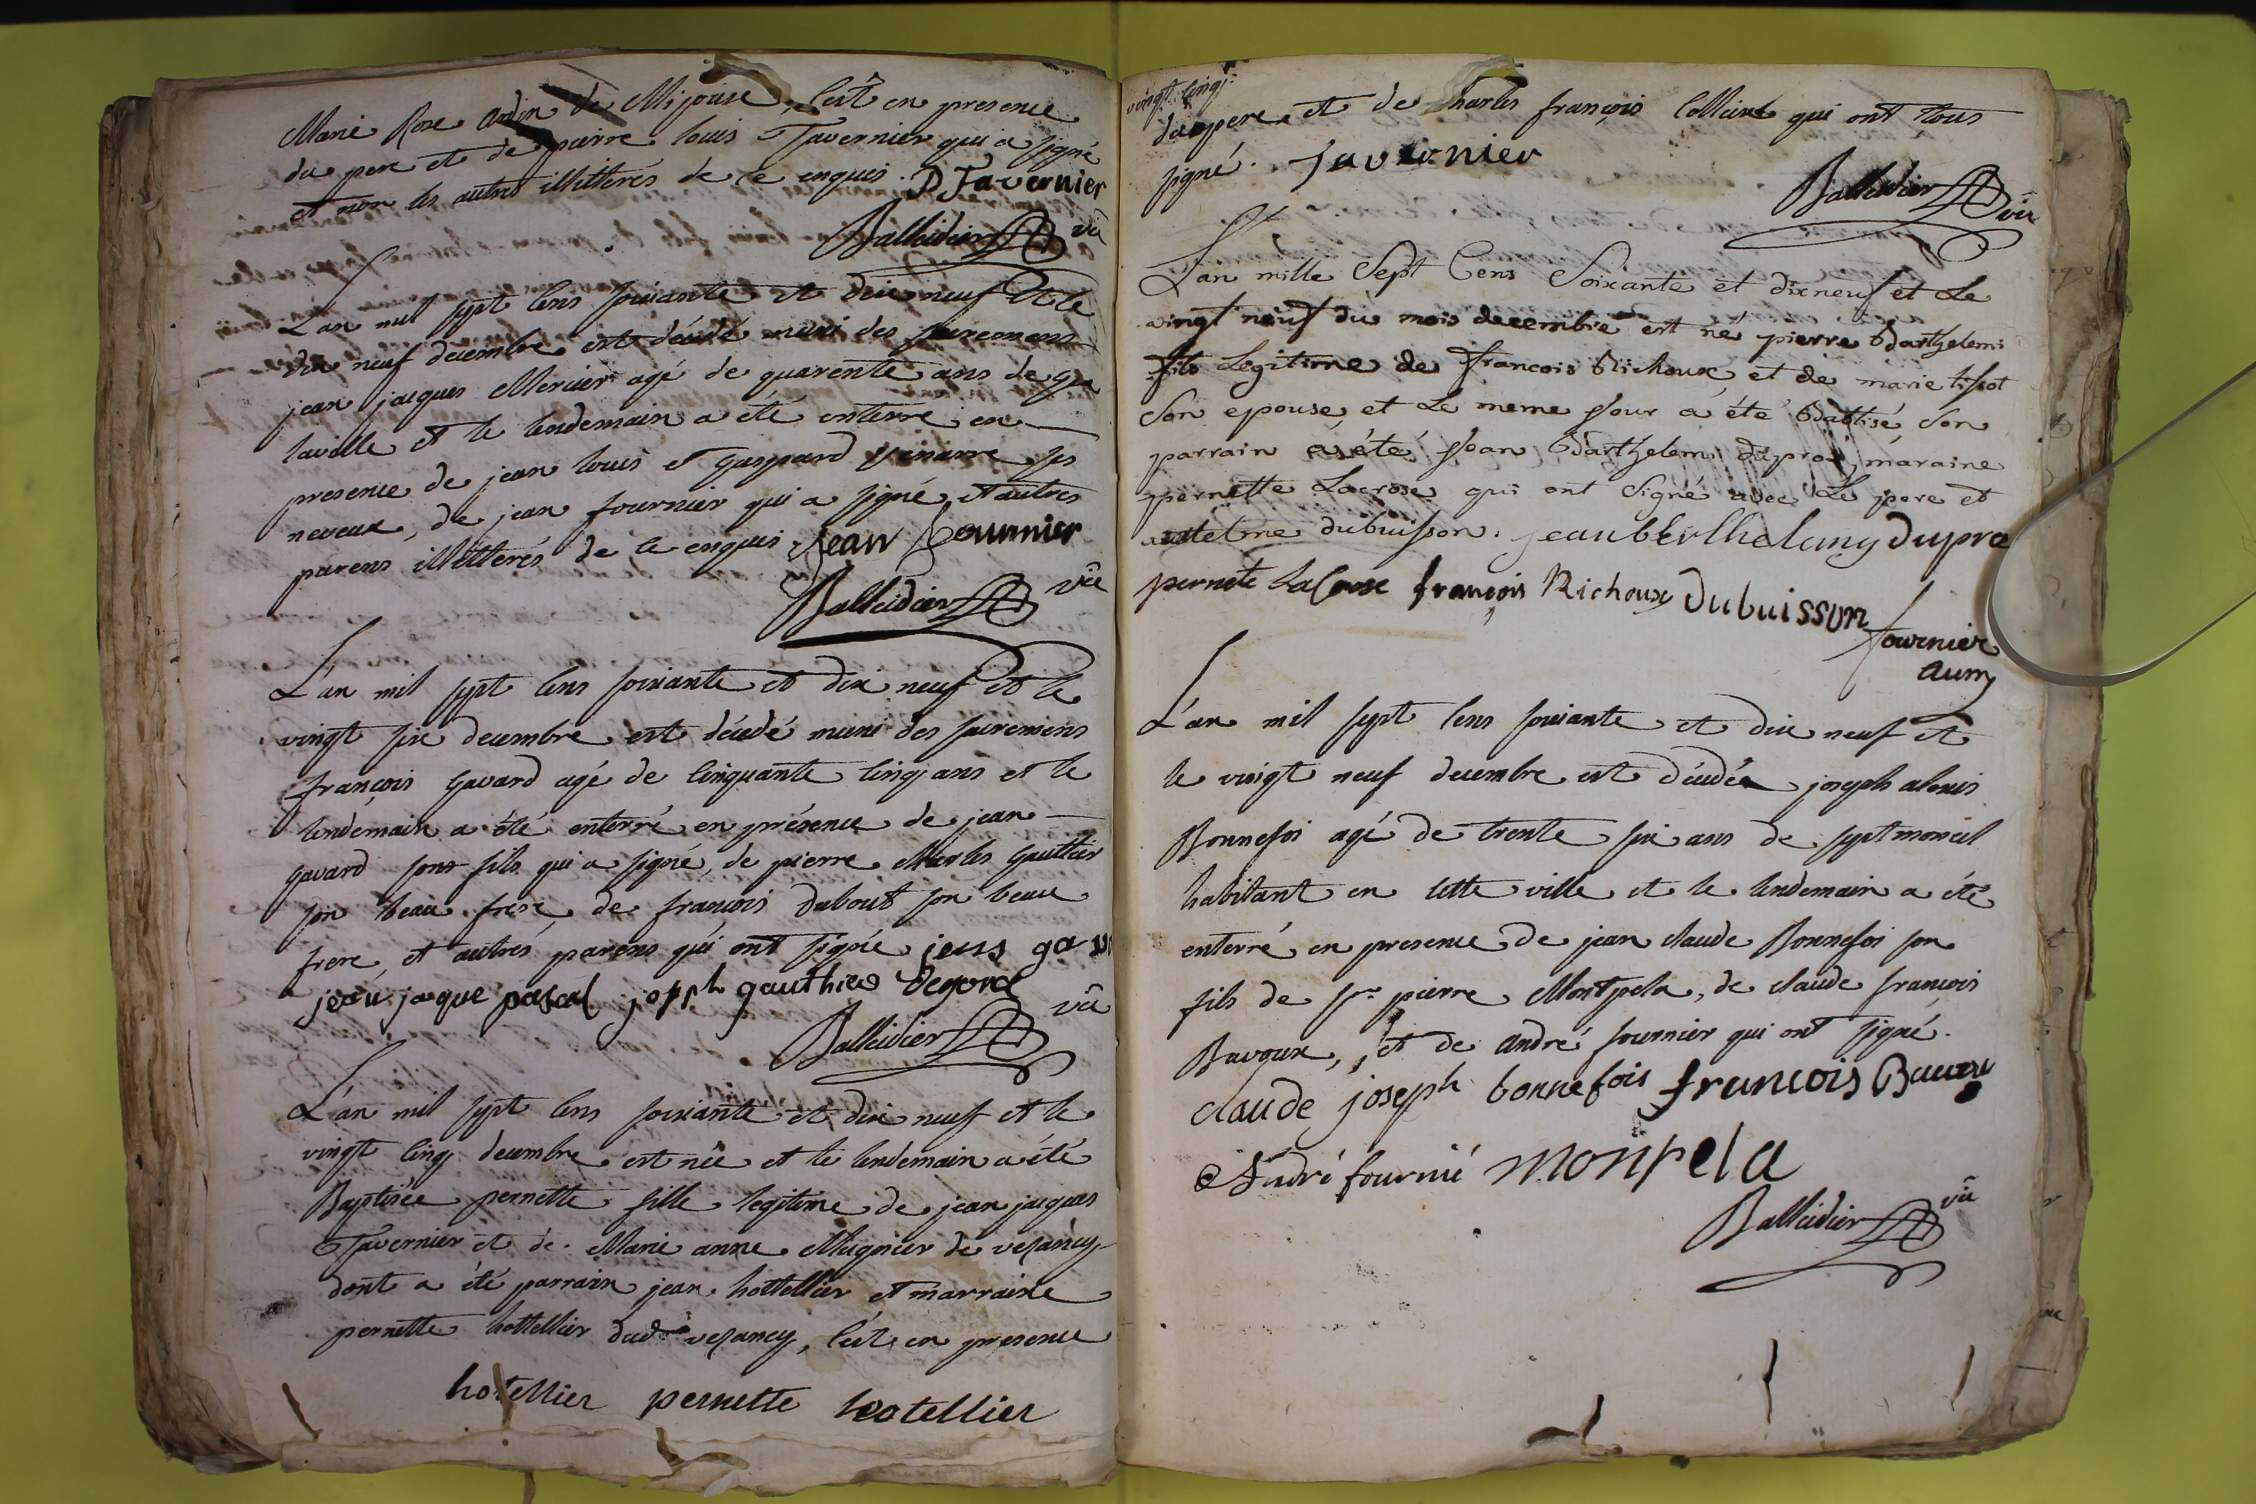 Marie Rose de Mijouse, c'est en presence
du pere et de pierre louis Tavernier qui a signé
et non les autres illitterés de ce enquis. P Tavernier
Balleidier vû
L'an mil sept cens soixante et dix neuf et le
dix neuf decembre est décédé muni des sacremens
jean jacques Mercier agé de quarente ans de Gex
la ville et le lendemain a été enterré en
presence de jean louis et Gaspard ses
neveux, de jean fournier qui a signé, et autres
parens illitterés de ce enquis. Jean Fournier
Balleidier vû
L'an mil sept cens soixante et dix neuf et le
vingt six decembre est décédé muni des sacremens
françois Gavard agé de cinquante cinq ans et le
lendemain a été enterré en présence de jean
gavard son fils qui a signé, de pierre Gauttier
son beau frere, de françois Dubout son beau
frere, et autres parens qui ont signé jens gav
jeau jaque pascal joseph gauthier
Balleidier vû
L'an mil sept cens soixante et dix neuf et le
vingt cinq decembre est née et le lendemain a été
Baptisée pernette fille legitime de jean jacques
Tavernier et de Marie anne Mugnier de vesancy
dont a été parrain jean hottellier et marraine
pernette hottellier dud vesancy, c'est en presence
hotellier pernette hotellier
vingt cinq:
du pere et de Charles françois qui ont tous
signé. Tavernier
Balleidier vû
L'an mille Sept Cens Soixante et dix neuf et Le
vingt neuf du mois decembre est né pierre Barthelemi
fils Legitime de francois Richoux et de marie tissot
Son epouse, et Le meme Jour a été Babtisé, Son
parrain a été Jean Barthelemi dupra, maraine
pernette Lacrose qui ont Signé avec Le pere et
antelme dubuisson. jean berthelemy dupra
pernete La Crose françois Richoux Dubuisson
fournier
aum
L'an mil sept cens soixante et dix neuf et
le vingt neuf decembre est décédé joseph alexis
Bonnefoi agé de trente six ans de septmoncel
habitant en cette ville et le lendemain a été
enterré en presence de jean claude Bonnefoi son
fils de Sr pierre Montpela, de claude françois
Bavoux, et de andré fournier qui ont signé.
claude joseph bonnefois francois Bavoux
André fournié monpela
Balleidier vû